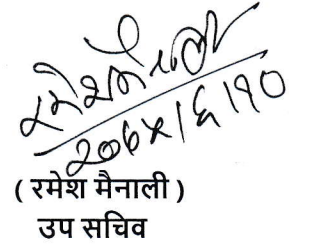 रमेश मैनाली
२०७४।६।१०
( रमेश मैनाली )
उप सचिव